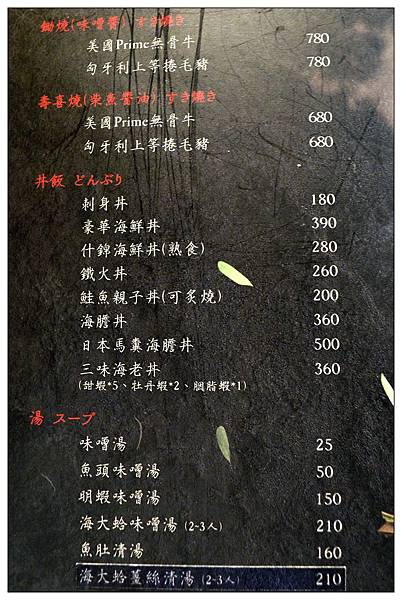 鋤燒(味噌醬) すき燒き
美國Prime無骨牛 780
匈牙利上等捲毛豬 780
壽喜燒(柴魚醬油) すき燒き
美國Prime無骨牛 680
匈牙利上等捲毛豬 680
丼飯 どんぶり
刺身丼 180
豪華海鮮丼 390
什錦海鮮丼(熟食) 280
鐵火丼 260
鮭魚親子丼(可炙燒) 200
海膽丼 360
日本馬糞海膽丼 500
三味海老丼 360
(甜蝦*5、牡丹蝦*2、胭脂蝦*1)
湯 スープ
味噌湯 25
魚頭味噌湯 50
明蝦味噌湯 150
海大蛤味噌湯 (2-3人) 210
魚肚清湯 160
海大蛤薑絲清湯 (2-3人) 210